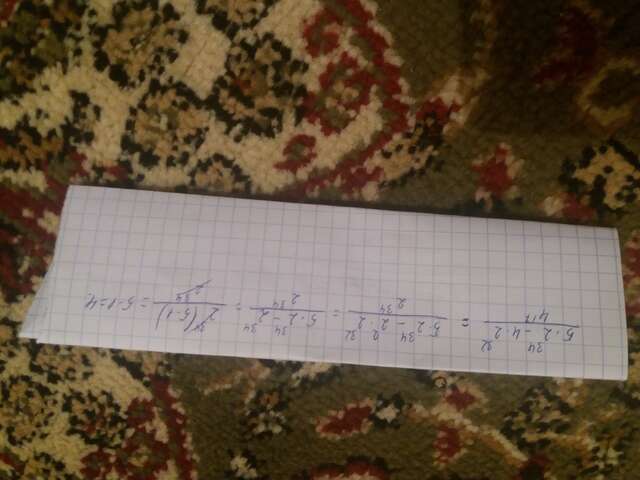 \frac{5 \cdot 2^{34} - 4 \cdot 2^{32}}{4^{17}} = \frac{5 \cdot 2^{34} - 2^2 \cdot 2^{32}}{2^{34}} = \frac{5 \cdot 2^{34} - 2^{34}}{2^{34}} = \frac{2^{34}(5-1)}{2^{34}} = 5-1=4